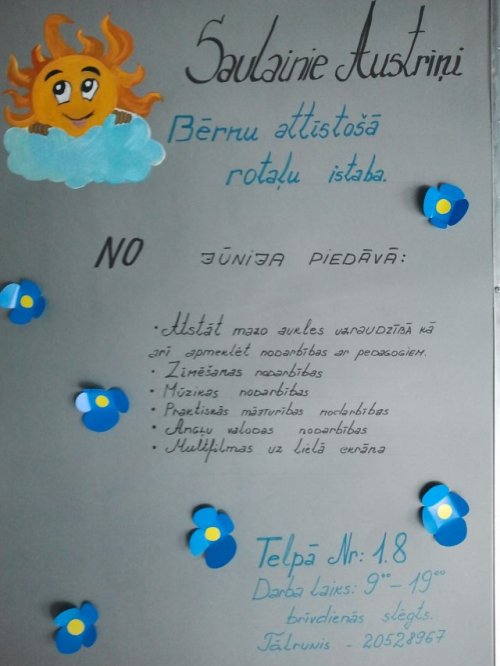 Saulainie Austriņi
Bērnu attīstošā
rotaļu istaba.
NO JŪNIJA PIEDĀVĀ:
• Atstāt mazo aukles uzraudzībā kā
arī apmeklēt nodarbības ar pedagogiem.
• Zīmēšanas nodarbības
• Mūzikas nodarbības
• Praktiskās māzturības nodarbības
• Angļu valodas nodarbības
• Multfilmas uz lielā ekrāna
Telpā Nr: 1.8
Darba laiks: 9⁰⁰ - 19⁰⁰
brīvdienās slēgts.
Tālrunis - 20528967